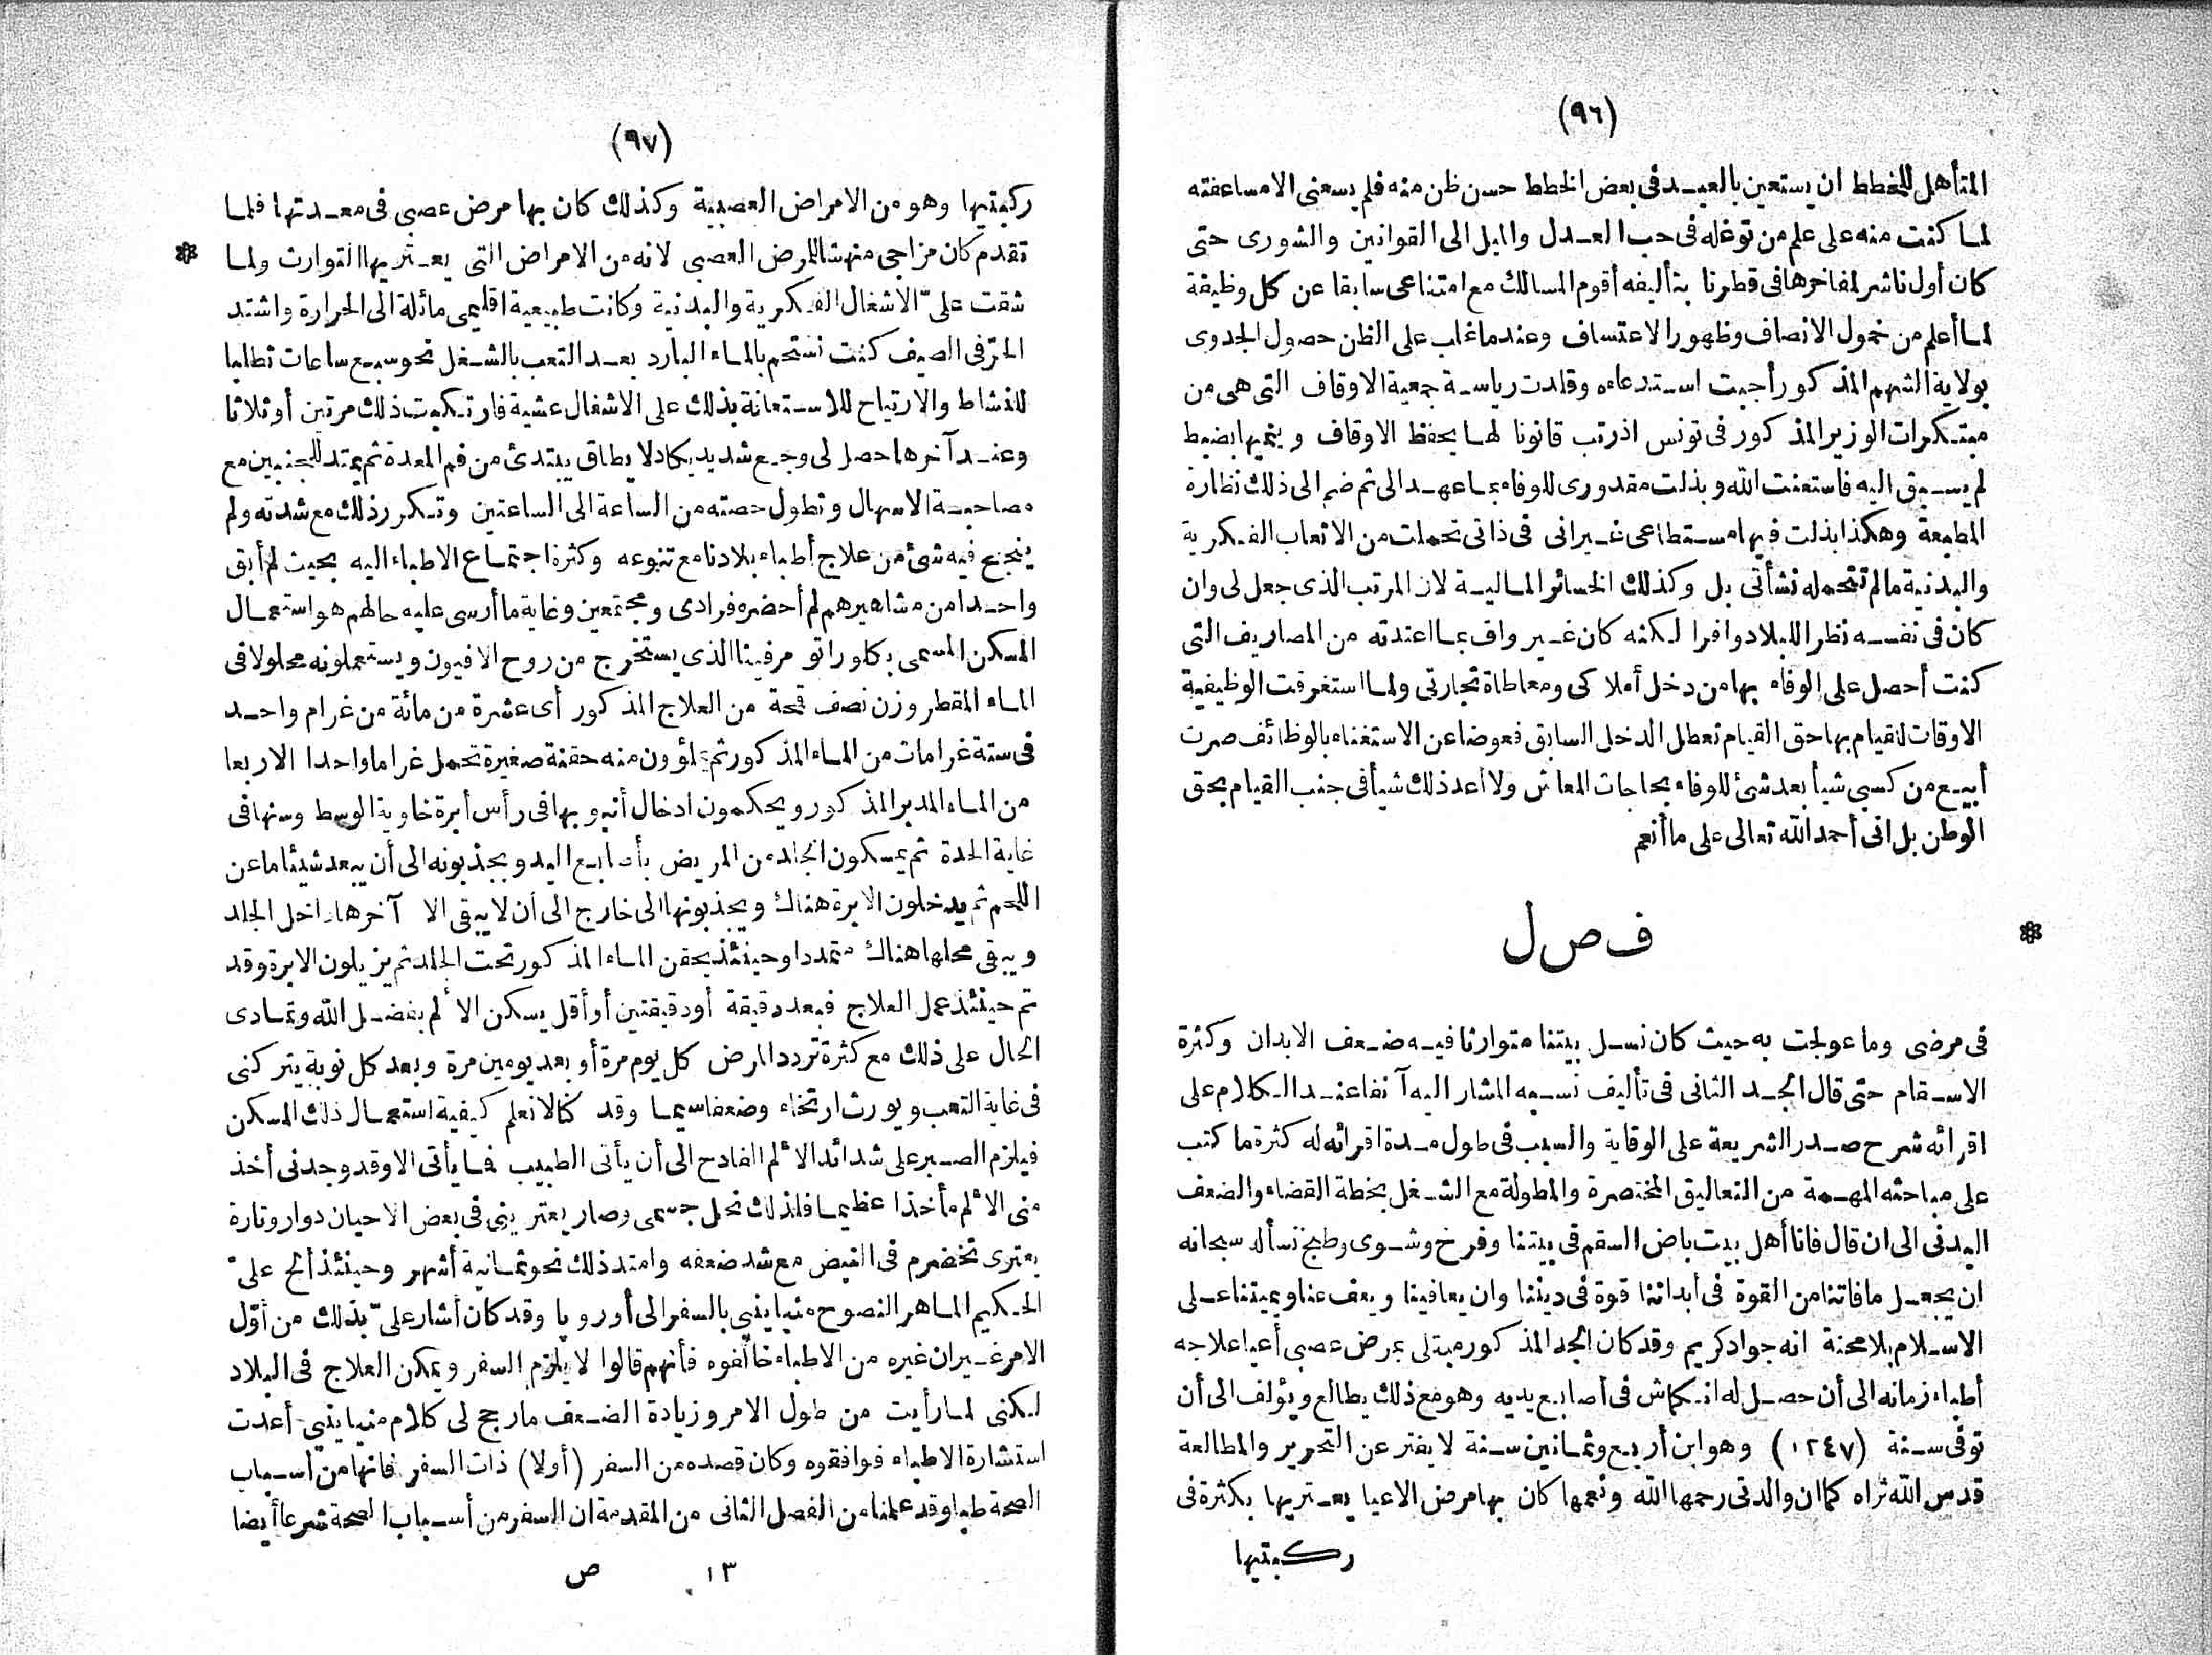 (٩٦)
المتأهل للخطط ان يستعين بالعبد فى بعض الخطط حسن ظن منه فلم يسعنى الامساعفته
لما كنت منه على علم من توغله فى حب العدل والميل الى القوانين والشورى حتى
كان أول ناشر لمفاخرها فى قطرنا بتأليفه أقوم المسالك مع امتناعى سابقا عن كل وظيفة
لما أعلم من خمول الانصاف وظهور الاعتساف وعندما غلب على الظن حصول الجدوى
بولاية الشهم المذكور أجبت استدعاءه وقلدت رياسة جمعية الاوقاف التى هى من
مبتكرات الوزير المذكور فى تونس اذ رتب قانونا لها يحفظ الاوقاف وينميها بضبط
لم يسبق اليه فاستعنت الله وبذلت مقدورى للوفاء بما عهد الى ثم ضم الى ذلك نظارة
المطبعة وهكذا بذلت فيها مستطاعى غير انى فى ذاتى تحملت من الاتعاب الفكرية
والبدنية مالم تتحمله نشأتى بل وكذلك الخسائر المالية لان المرتب الذى جعل لى وان
كان فى نفسه نظرا للبلاد وافرا لكنه كان غير واف بما اعتدته من المصاريف التى
كنت أحصل على الوفاء بها من دخل أملاكى ومعاطاة تجارتى ولما استغرقت الوظيفية
الاوقات للقيام بها حق القيام تعطل الدخل السابق فعوضا عن الاستغناء بالوظائف صرت
أبيع من كسبى شيأ بعد شئ للوفاء بحاجات المعاش ولا أعد ذلك شيأ فى جنب القيام بحق
الوطن بل انى أحمد الله تعالى على ما أنعم
ف ص ل
فى مرضى وما عولجت به حيث كان نسل بيتنا متوارثا فيه ضعف الابدان وكثرة
الاسقام حتى قال الجد الثانى فى تأليف نسبه المشار اليه آنفا عند الكلام على
اقرائه شرح صدر الشريعة على الوقاية والسبب فى طول مدة اقرائه له كثرة ما كتب
على مباحثه المهمة من التعاليق المختصرة والمطولة مع الشغل بخطة القضاء والضعف
البدنى الى ان قال فانا أهل بيت باض السقم فى بيتنا وفرخ وشوى وطبخ نسأله سبحانه
ان يجعل ما فاتنا من القوة فى أبداننا قوة فى ديننا وان يعافينا ويعف عنا ويميتنا على
الاسلام بلا محنة انه جواد كريم وقد كان الجد المذكور مبتلى بمرض عصبى أعيا علاجه
أطباء زمانه الى أن حصل له انكماش فى أصابع يديه وهو مع ذلك يطالع ويؤلف الى أن
توفى سنة (١٢٤٧) وهو ابن أربع وثمانين سنة لا يفتر عن التحرير والمطالعة
قدس الله ثراه كما ان والدتى رحمها الله ونعمها كان بها مرض الاعيا يعتريها بكثرة فى
ركبتيها
(٩٧)
ركبتيها وهو من الامراض العصبية وكذلك كان بها مرض عصبى فى معدتها فلما
تقدم كان مزاجى منهشا للمرض العصبى لانه من الامراض التى يعتريها التوارث ولما
شقت علىّ الاشغال الفكرية والبدنية وكانت طبيعية اقليمى مائلة الى الحرارة واشتد
الحرّ فى الصيف كنت نستحم بالماء البارد بعد التعب بالشغل نحو سبع ساعات تطلبا
للنشاط والارتياح للاستعانة بذلك على الاشغال عشية فارتكبت ذلك مرتين أو ثلاثا
وعند آخرها حصل لى وجع شديد يكاد لا يطاق يبتدئ من فم المعدة ثم يمتد للجنبين مع
مصاحبة الاسهال وتطول حصته من الساعة الى الساعتين وتكرر ذلك مع شدته ولم
ينجع فيه شئ من علاج أطباء بلادنا مع تنوعه وكثرة اجتماع الاطباء اليه بحيث لم أبق
واحدا من مشاهيرهم لم أحضره فرادى ومجتمعين وغاية ما أرسى عليه حالهم هو استعمال
المسكن المسمى بكلوراتو مرفينا الذى يستخرج من روح الافيون ويستعملونه محلولا فى
الماء المقطر وزن نصف قمحة من العلاج المذكور أى عشرة من مائة من غرام واحد
فى ستة غرامات من الماء المذكور ثم يملؤون منه حقنة صغيرة تحمل غراما واحدا الا ربعا
من الماء المدبر المذكور ويحكمون ادخال أنبوبها فى رأس أبرة خاوية الوسط وسنها فى
غاية الحدة ثم يمسكون الجلد من المريض بأصابع اليد ويجذبونه الى أن يبعد شيئا ما عن
اللحم ثم يدخلون الابرة هناك ويجذبونها الى خارج الى أن لا يبقى الا آخرها داخل الجلد
ويبقى محلها هناك متمددا وحينئذ يحقن الماء المذكور تحت الجلد ثم يزيلون الابرة وقد
تم حينئذ عمل العلاج فبعد دقيقة أو دقيقتين أو أقل يسكن الألم بفضل الله وتمادى
الحال على ذلك مع كثرة تردد المرض كل يوم مرة أو بعد يومين مرة وبعد كل نوبة يتركنى
فى غاية التعب ويورث ارتخاء وضعفا سيما وقد كنا لا نعلم كيفية استعمال ذلك المسكن
فيلزم الصبر على شدائد الألم الفادح الى أن يأتى الطبيب فما يأتى الا وقد وجدنى أخذ
منى الألم مأخذا عظيما فلذلك نحل جسمى وصار يعترينى فى بعض الاحيان دوار وتارة
يعترى تخضرم فى النبض مع شد ضعفه وامتد ذلك نحو ثمانية أشهر وحينئذ ألح علىّ
الحكيم الماهر النصوح منيا ينبى بالسفر الى أوروپا وقد كان أشار علىّ بذلك من أوّل
الامر غير ان غيره من الاطباء خالفوه فأنهم قالوا لا يلزم السفر ويمكن العلاج فى البلاد
لكنى لما رأيت من طول الامر وزيادة الضعف ما رجح لى كلام منيا ينبى أعدت
استشارة الاطباء فوافقوه وكان قصده من السفر (أولا) ذات السفر فانها من أسباب
الصحة طبا وقد علمنا من الفصل الثانى من المقدمة ان السفر من أسباب الصحة شرعا أيضا
١٣ ص